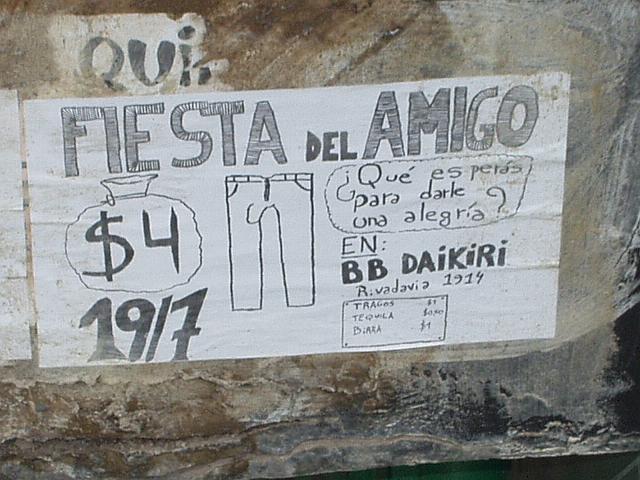 QUi
FIESTA DEL AMIGO
¿¡Qué es perás
para darle
una alegría?
$4
EN:
BB DAiKiRi
Rivadavia 1914
19/7
TRAGOS $1
TEQUILA $0,50
BIRRA $1